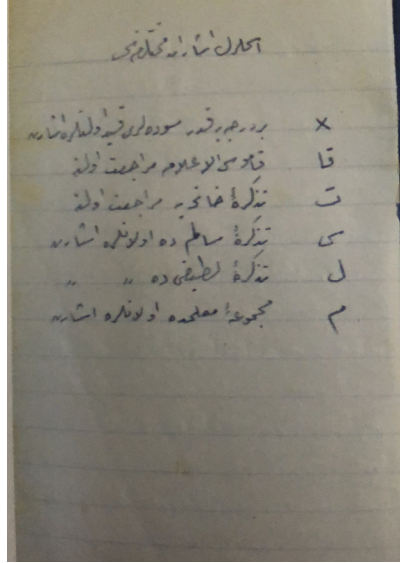 اشارات مختلفه
× بر درجه یه قدر مسوده لری قید اولنانلره اشارت
قا قاموس الاعلامه مراجعت اولنه
ت تذکرهٔ خاتمه یه مراجعت اولنه
س تذکرهٔ سالم ده اولانلره اشارت
ل تذکرهٔ لطیفی ده " "
م مجموعهٔ معلمده اولانلره اشارت